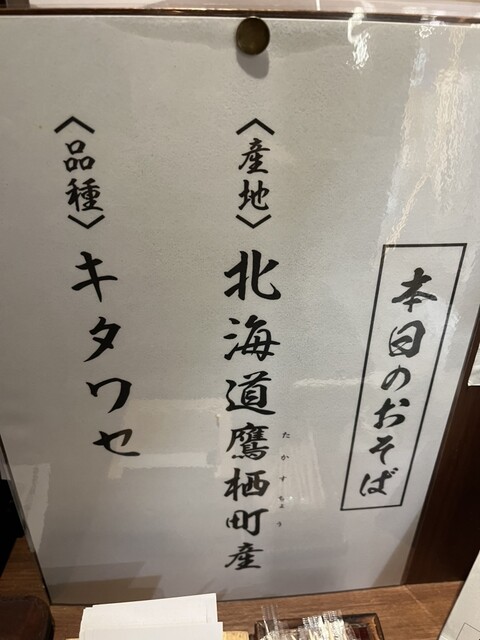 本日のおそば
〈産地〉北海道鷹栖町産
たかすちょう
〈品種〉キタワセ